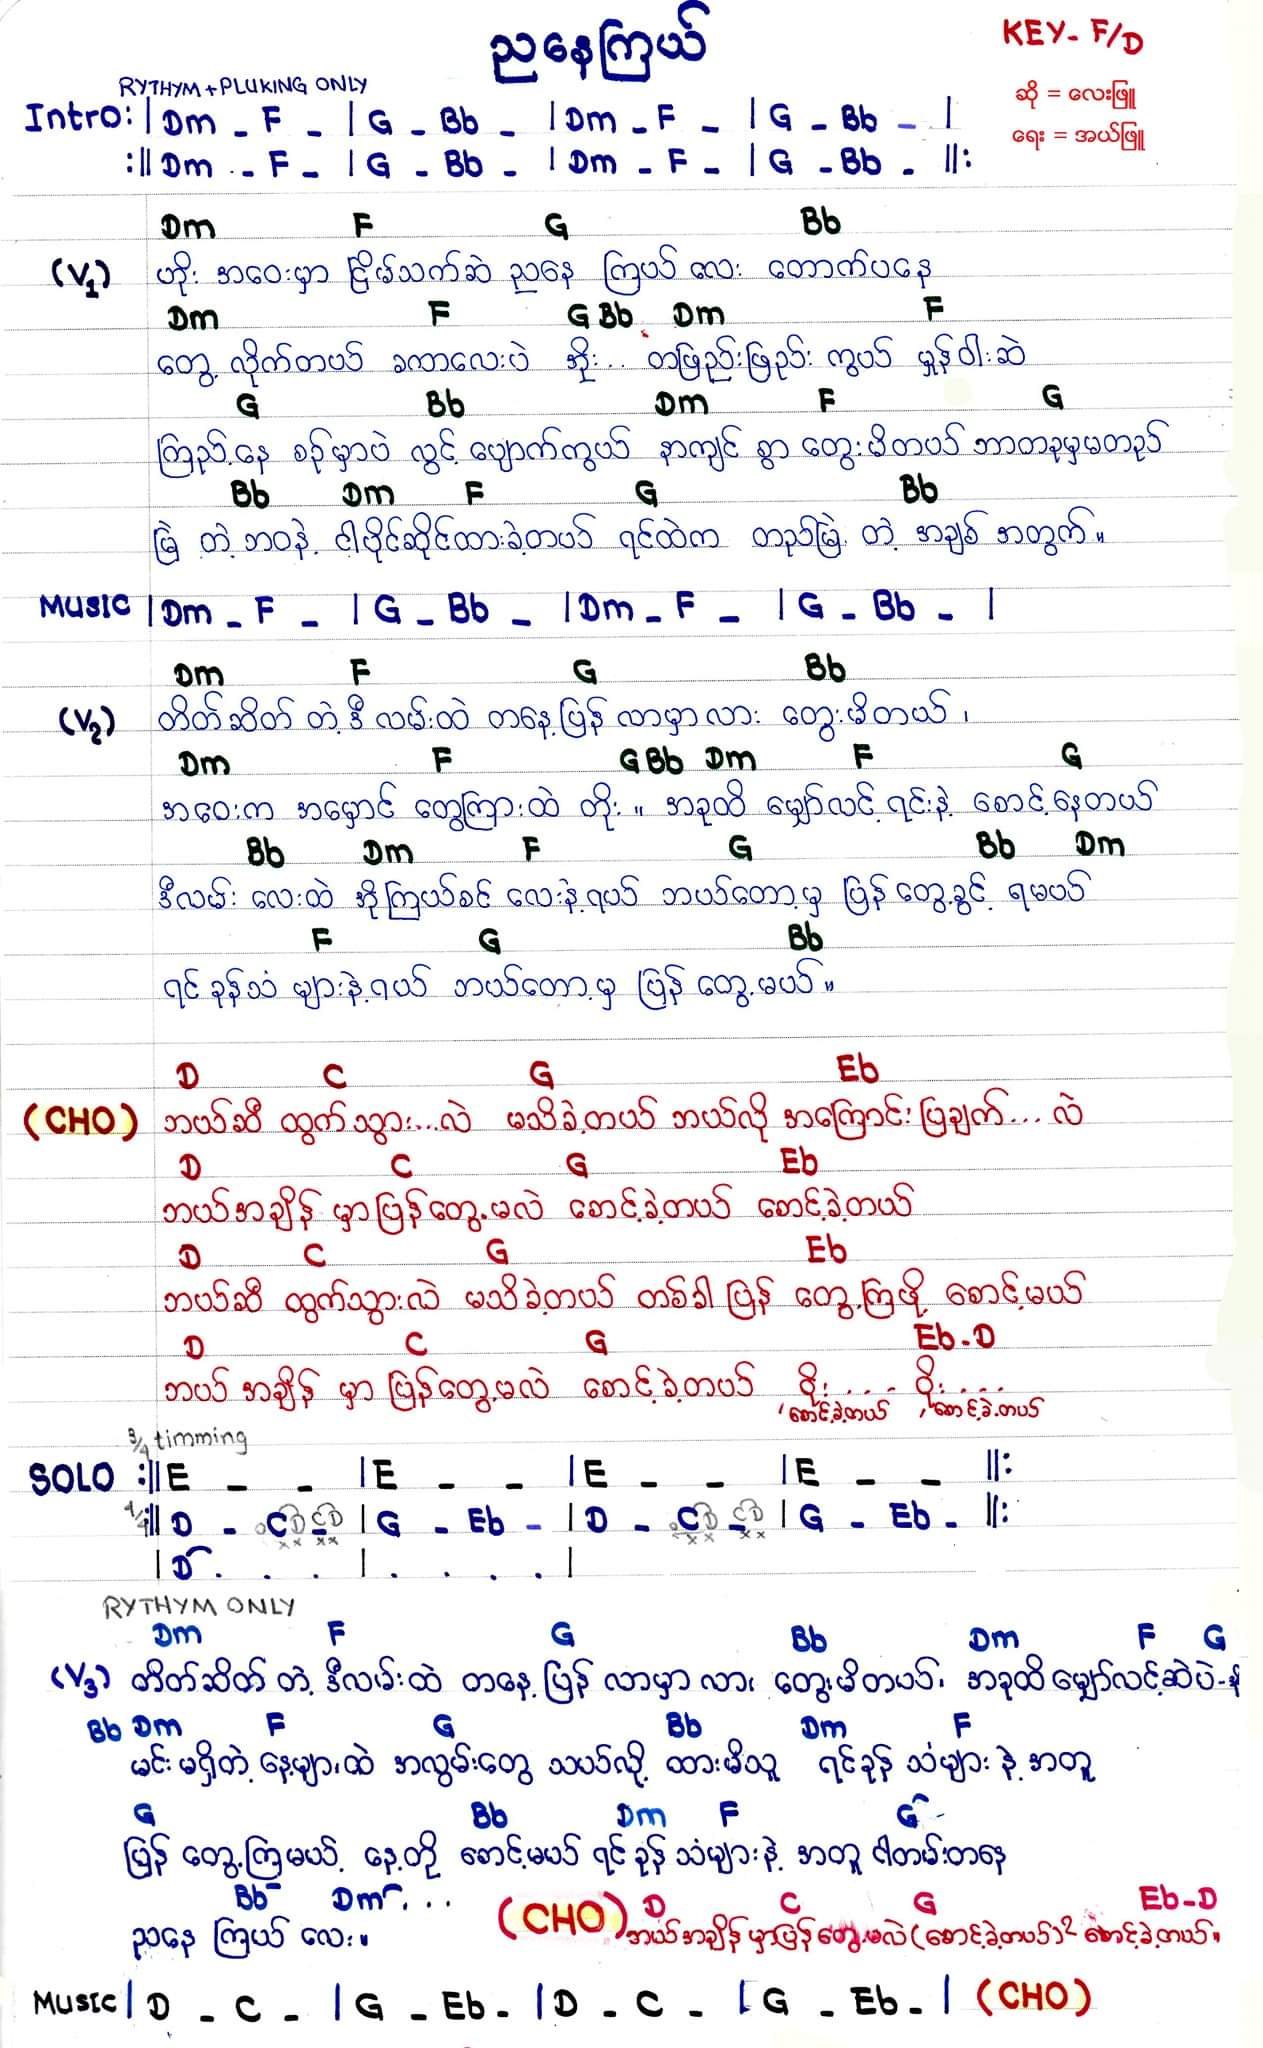 ညနေကြယ်
KEY- F/D
ဆို = လေးဖြူ
ရေး = အယ်ဖြူ
RYTHYM+PLUKING ONLY
Intro: | Dm - F - | G - Bb - | Dm - F - | G - Bb - |
:|| Dm - F - | G - Bb - | Dm - F - | G - Bb - ||:
Dm F G Bb
(V1) ဟိုး အဝေးမှာ ငြိမ်သက်ဆဲ ညနေ ကြယ် လေး တောက်ပနေ
Dm F G Bb Dm F
တွေ့ လိုက်တယ် ခဏလေးပဲ အိုး... တဖြည်းဖြည်း ကွယ် မှုန်ဝါးဆဲ
G Bb Dm F G
ကြည့်နေ စဉ်မှာပဲ လွင့် ပျောက်ကွယ် နာကျင် စွာ တွေးမိတယ် ဘာတခုမှမတည်
Bb Dm F G Bb
မြဲ တဲ့ ဘဝနဲ့ ငါပိုင်ဆိုင်ထားခဲ့တယ် ရင်ထဲက တည်မြဲ တဲ့ အချစ် အတွက်။
MUSIC | Dm - F - | G - Bb - | Dm - F - | G - Bb - |
Dm F G Bb
(V2) တိတ်ဆိတ် တဲ့ ဒီ လမ်းထဲ တနေ့ ပြန် လာမှာလား တွေးမိတယ် ၊
Dm F G Bb Dm F G
အဝေးက အမှောင် တွေကြားထဲ တိုး ။ အခုထိ မျှော်လင့် ရင်းနဲ့ စောင့်နေတယ်
Bb Dm F G Bb Dm
ဒီလမ်း လေးထဲ အိုကြယ်စင် လေးနဲ့ရယ် ဘယ်တော့မှ ပြန်တွေ့ခွင့် ရမယ်
F G Bb
ရင် ခုန်သံ များနဲ့ရယ် ဘယ်တော့မှ ပြန် တွေ့မယ်။
D C G Eb
(CHO) ဘယ်ဆီ ထွက်သွား...လဲ မသိခဲ့တယ် ဘယ်လို အကြောင်းပြချက်... လဲ
D C G Eb
ဘယ်အချိန် မှာပြန်တွေ့မလဲ စောင့်ခဲ့တယ် စောင့်ခဲ့တယ်
D C G Eb
ဘယ်ဆီ ထွက်သွားလဲ မသိခဲ့တယ် တစ်ခါ ပြန် တွေ့ကြဖို့ စောင့်မယ်
D C G Eb-D
ဘယ် အချိန် မှာ ပြန်တွေ့မလဲ စောင့်ခဲ့တယ် ဝိုး.... ဝိုး....
စောင့်ခဲ့တယ် စောင့်ခဲ့တယ်
3/4 timming
SOLO :|| E - - | E - - | E - - | E - - ||:
4/4 :|| D - C D C D | G - Eb - | D - C D C D | G - Eb - ||:
| D . . . | . . . . |
RYTHYM ONLY
Dm F G Bb Dm F G
(V3) တိတ်ဆိတ် တဲ့ ဒီလမ်းထဲ တနေ့ ပြန် လာမှာ လား တွေးမိတယ်၊ အခုထိ မျှော်လင့်ဆဲပဲ-န်
Bb Dm F G Bb Dm F
မင်း မရှိတဲ့ နေ့များထဲ အလွမ်းတွေ သယ်လို့ ထားမိသူ ရင်ခုန် သံများ နဲ့ အတူ
G Bb Dm F G
ပြန် တွေ့ကြမယ့် နေ့ကို စောင့်မယ် ရင် ခုန် သံများနဲ့ အတူ ငါတမ်းတနေ
Bb Dm...
ညနေ ကြယ် လေး။
D C G Eb-D
(CHO) ဘယ်အချိန် မှာပြန်တွေ့မလဲ (စောင့်ခဲ့တယ်)2 စောင့်ခဲ့တယ်။
MUSIC | D - C - | G - Eb - | D - C - | G - Eb - | (CHO)